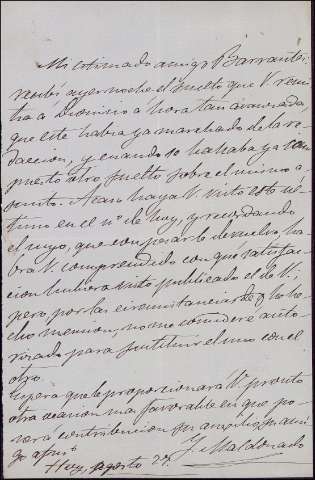 Mi estimado amigo Barrantes:
recibí ayer noche el suelto que V. remi
tía á Dionisio á hora tan avanzada,
que este habia ya marchado de la re
daccion, y cuando se hallaba ya com
puesto otro suelto sobre el mismo a
sunto. Acaso haya V. visto este ul
timo en el nº de hoy, y recordando
el suyo, que con pesar le devuelvo, ha
brá V. comprendido con qué satisfac
cion hubiera visto publicado el de V.
pero por las circunstancias de q. he he
cho mencion, no me consideré auto
rizado para sustituir el uno con el
otro.
Espera que le proporcionará V. pronto
otra ocasion mas favorable en que po
nerá contribucion su amistad su ami
go afmo.
Hoy, agosto 27. J. Maldonado